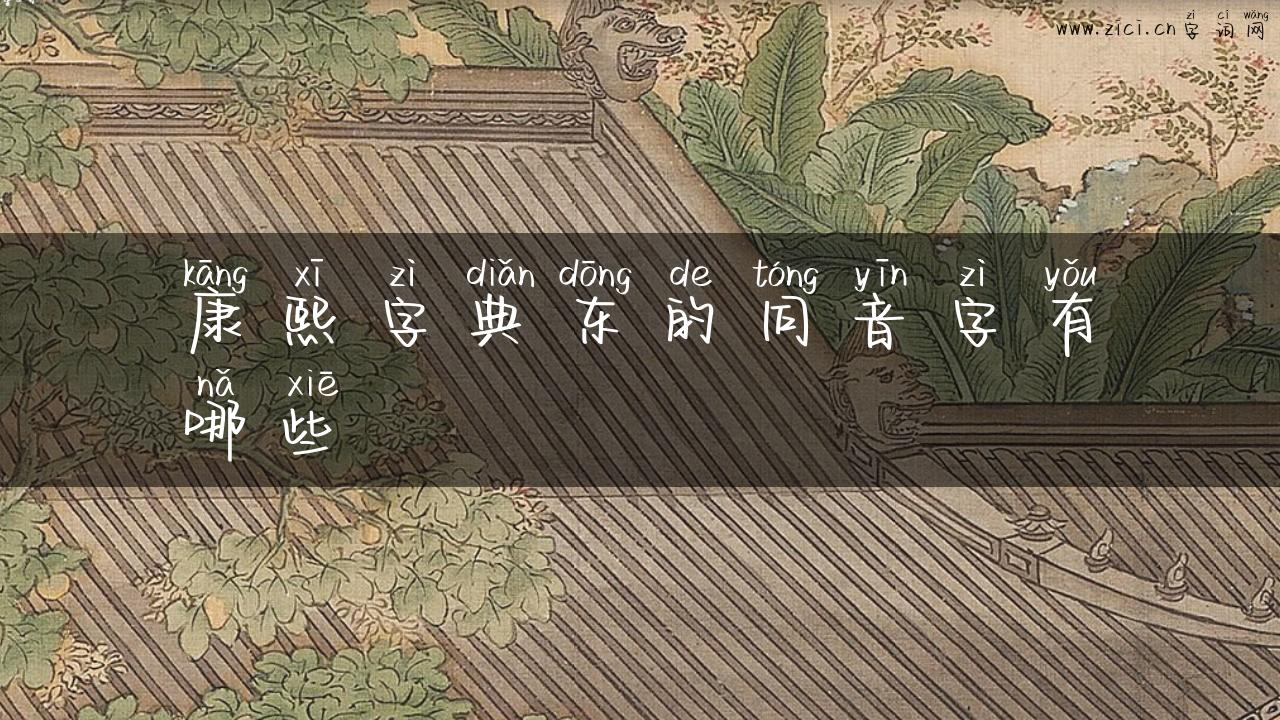 zì cí wǎng
www.zici.cn 字词网
kāng xī zì diǎn dōng de tóng yīn zì yǒu
康熙字典东的同音字有
nǎ xiē
哪些